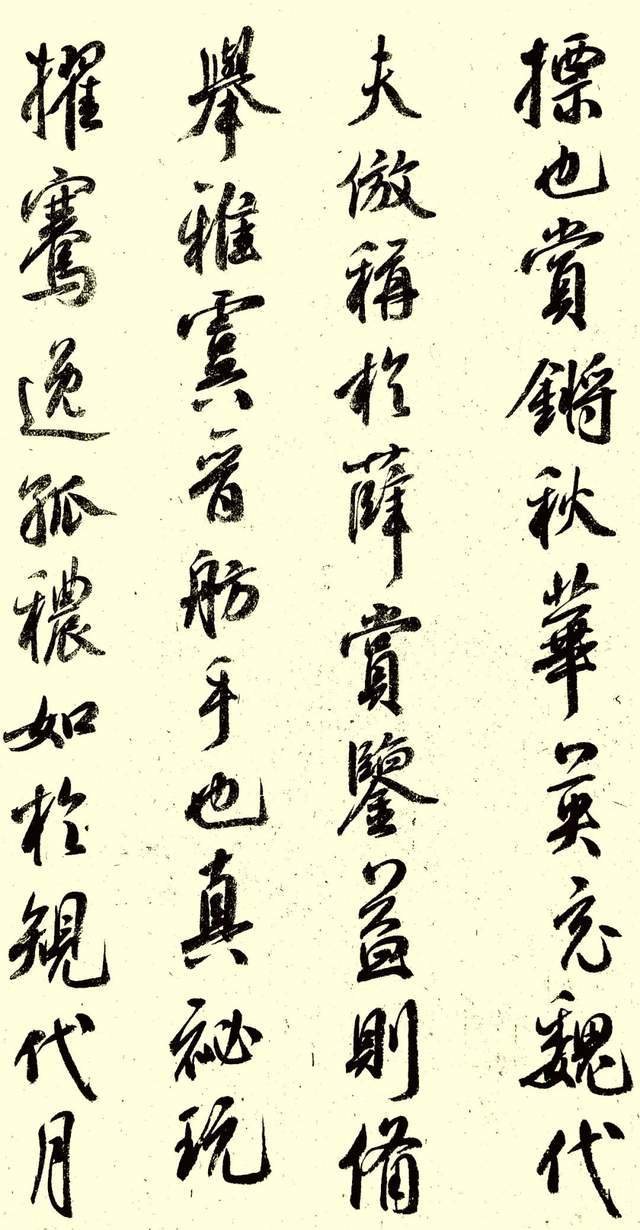 摽也賞鏘秋華英充魏代
夫倣稱於薛賞鑒益則備
舉雅虞晉舫手也真祕玩
擢騫逸孤穠如於規代月